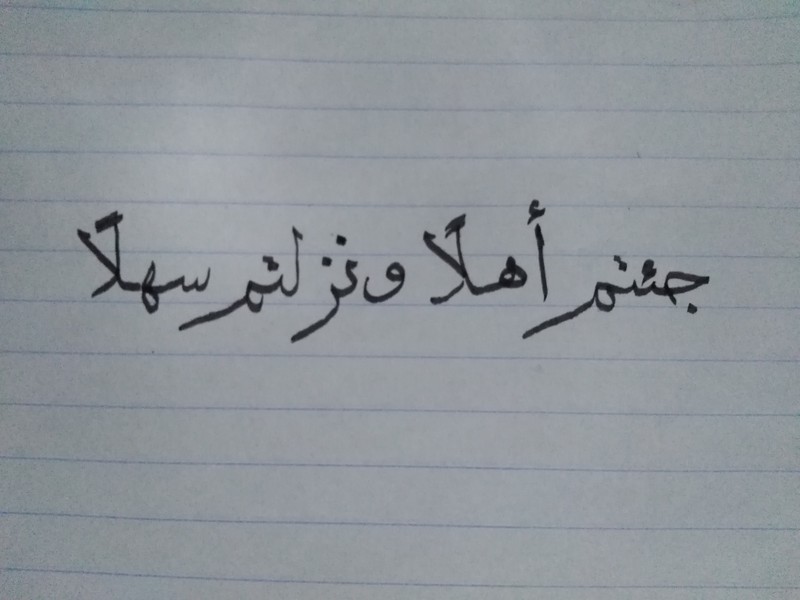 جئتم أهلًا ونزلتم سهلًا